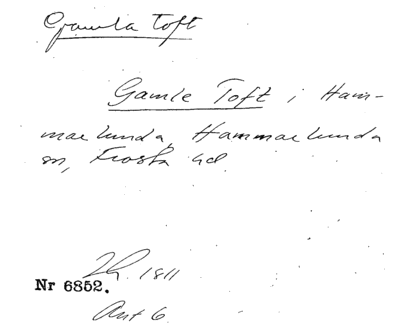 Gamla Toft
Gamle Toft i Ham-
marlunda, Hammarlunda
sn, Frosta hd.
1811
Nr 6852.
Akt 6